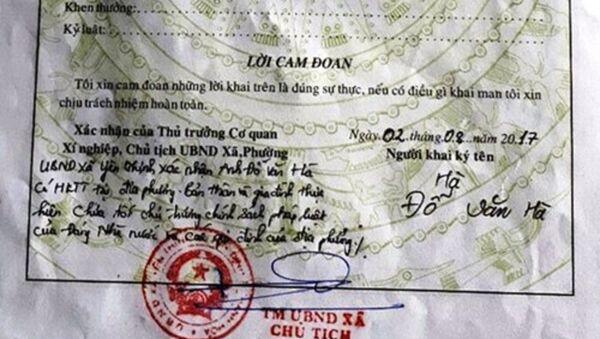 Khen thưởng:
Kỷ luật:
LỜI CAM ĐOAN
Tôi xin cam đoan những lời khai trên là đúng sự thực, nếu có điều gì khai man tôi xin
chịu trách nhiệm hoàn toàn.
Xác nhận của Thủ trưởng Cơ quan
Xí nghiệp, Chủ tịch UBND Xã,Phường
Ngày 02 tháng 08 năm 2017
Người khai ký tên
UBND xã Yên Thịnh xác nhận Anh Đỗ Văn Hà
Có HKTT tại địa phương. Bản thân và gia đình thực
hiện chưa tốt chủ trương chính sách pháp luật
của Đảng Nhà nước và các quy định của địa phương!
Hà
Đỗ Văn Hà
TM UBND XÃ
CHỦ TỊCH